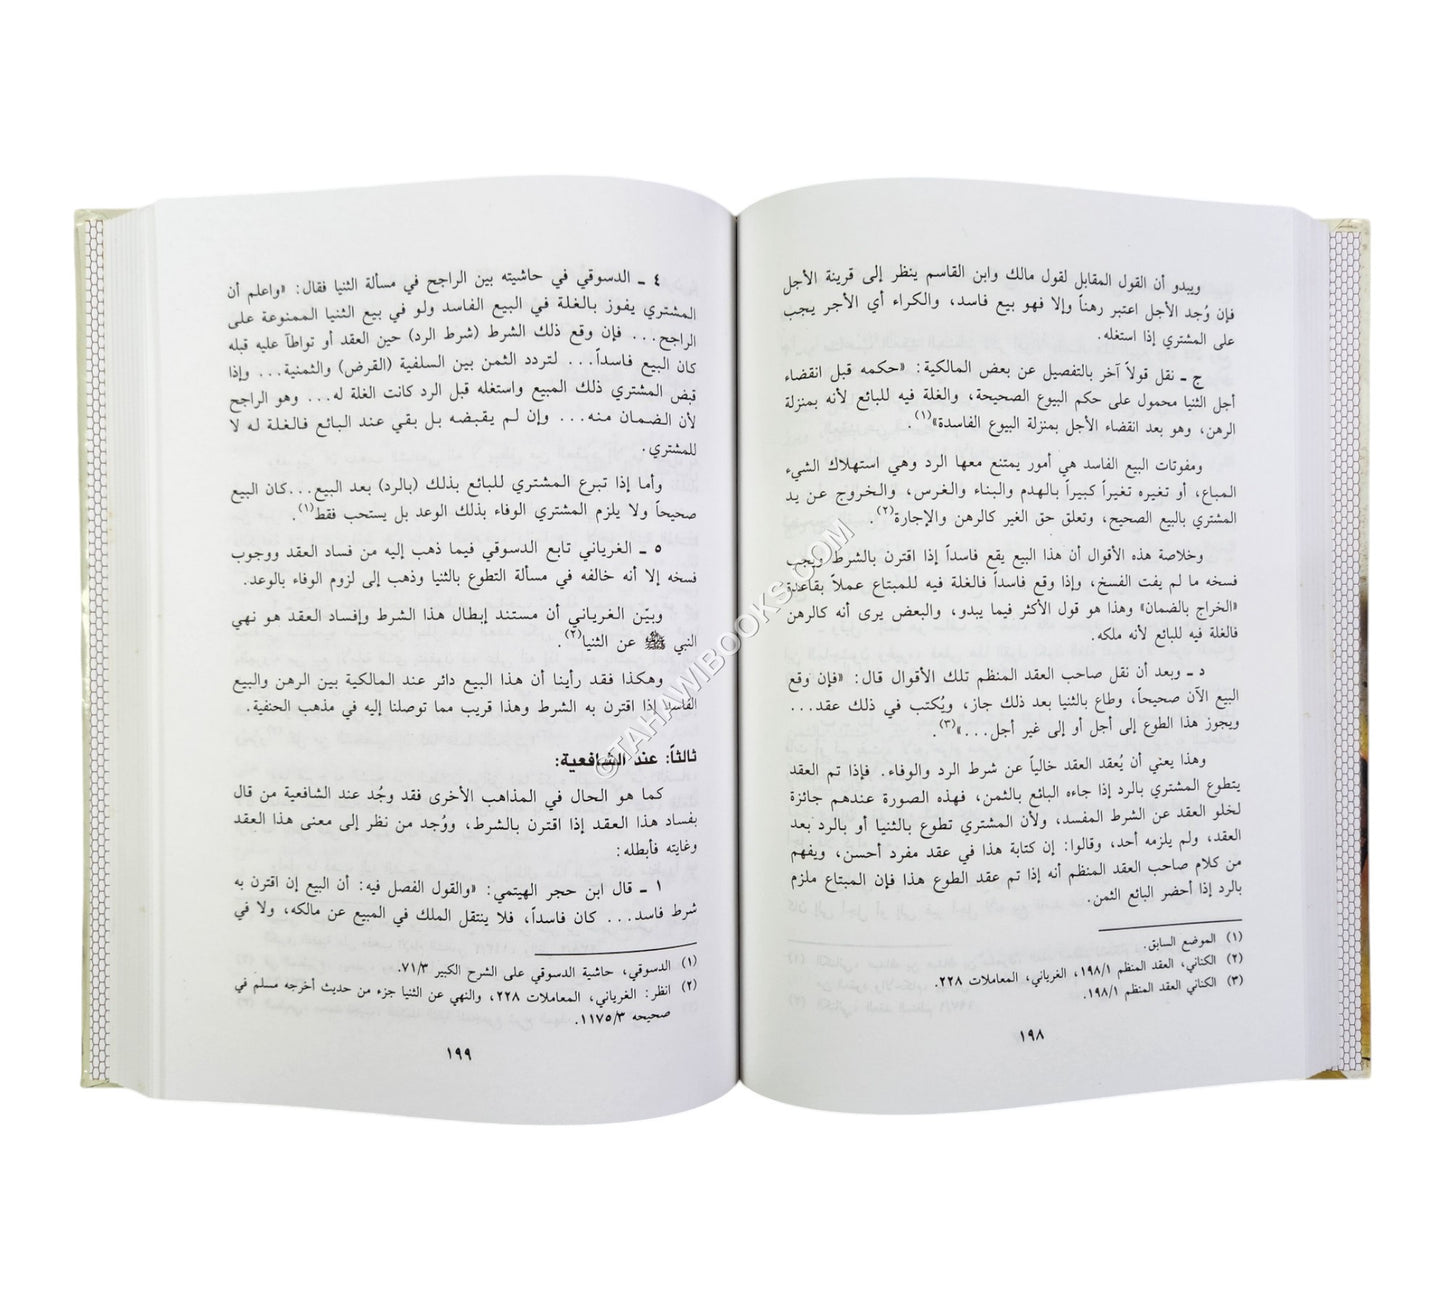 ويبدو أن القول المقابل لقول مالك وابن القاسم ينظر إلى قرينة الأجل
فإن وُجد الأجل اعتبر رهناً وإلا فهو بيع فاسد، والكراء أي الأجر يجب
على المشتري إذا استغله.
ج ـ نقل قولاً آخر بالتفصيل عن بعض المالكية: «حكمه قبل انقضاء
أجل الثنيا محمول على حكم البيوع الصحيحة، والغلة فيه للبائع لأنه بمنزلة
الرهن، وهو بعد انقضاء الأجل بمنزلة البيوع الفاسدة»(١).
ومفوتات البيع الفاسد هي أمور يمتنع معها الرد وهي استهلاك الشيء
المباع، أو تغيره تغيراً كبيراً بالهدم والبناء والغرس، والخروج عن يد
المشتري بالبيع الصحيح، وتعلق حق الغير كالرهن والإجارة(٢).
وخلاصة هذه الأقوال أن هذا البيع يقع فاسداً إذا اقترن بالشرط ويجب
فسخه ما لم يفت الفسخ، وإذا وقع فاسداً فالغلة فيه للمبتاع عملاً بقاعدة
«الخراج بالضمان» وهذا هو قول الأكثر فيما يبدو، والبعض يرى أنه كالرهن
فالغلة فيه للبائع لأنه ملكه.
د ـ وبعد أن نقل صاحب العقد المنظم تلك الأقوال قال: «فإن وقع
البيع الآن صحيحاً، وطاع بالثنيا بعد ذلك جاز، ويُكتب في ذلك عقد...
ويجوز هذا الطوع إلى أجل أو إلى غير أجل...»(٣).
وهذا يعني أن يُعقد العقد خالياً عن شرط الرد والوفاء. فإذا تم العقد
يتطوع المشتري بالرد إذا جاءه البائع بالثمن، فهذه الصورة عندهم جائزة
لخلو العقد عن الشرط المفسد، ولأن المشتري تطوع بالثنيا أو بالرد بعد
العقد، ولم يلزمه أحد، وقالوا: إن كتابة هذا في عقد مفرد أحسن، ويفهم
من كلام صاحب العقد المنظم أنه إذا تم عقد الطوع هذا فإن المبتاع ملزم
بالرد إذا أحضر البائع الثمن.
(١) الموضع السابق.
(٢) الكناني، العقد المنظم ١٩٨/١، الغرياني، المعاملات ٢٢٨.
(٣) الكناني العقد المنظم ١٩٨/١.
١٩٨
٤ ـ الدسوقي في حاشيته بين الراجح في مسألة الثنيا فقال: «واعلم أن
المشتري يفوز بالغلة في البيع الفاسد ولو في بيع الثنيا الممنوعة على
الراجح... فإن وقع ذلك الشرط (شرط الرد) حين العقد أو تواطآ عليه قبله
كان البيع فاسداً... لتردد الثمن بين السلفية (القرض) والثمنية... وإذا
قبض المشتري ذلك المبيع واستغله قبل الرد كانت الغلة له... وهو الراجح
لأن الضمان منه... وإن لم يقبضه بل بقي عند البائع فالغلة له لا
للمشتري.
وأما إذا تبرع المشتري للبائع بذلك (بالرد) بعد البيع...كان البيع
صحيحاً ولا يلزم المشتري الوفاء بذلك الوعد بل يستحب فقط(١).
٥ ـ الغرياني تابع الدسوقي فيما ذهب إليه من فساد العقد ووجوب
فسخه إلا أنه خالفه في مسألة التطوع بالثنيا وذهب إلى لزوم الوفاء بالوعد.
وبيّن الغرياني أن مستند إبطال هذا الشرط وإفساد العقد هو نهي
النبي ﷺ عن الثنيا(٢).
وهكذا فقد رأينا أن هذا البيع دائر عند المالكية بين الرهن والبيع
الفاسد إذا اقترن به الشرط وهذا قريب مما توصلنا إليه في مذهب الحنفية.
ثالثاً: عند الشافعية:
كما هو الحال في المذاهب الأخرى فقد وجُد عند الشافعية من قال
بفساد هذا العقد إذا اقترن بالشرط، ووُجد من نظر إلى معنى هذا العقد
وغايته فأبطله:
١ ـ قال ابن حجر الهيتمي: «والقول الفصل فيه: أن البيع إن اقترن به
شرط فاسد... كان فاسداً، فلا ينتقل الملك في المبيع عن مالكه، ولا في
(١) الدسوقي، حاشية الدسوقي على الشرح الكبير ٧١/٣.
(٢) انظر: الغرياني، المعاملات ٢٢٨، والنهي عن الثنيا جزء من حديث أخرجه مسلم في
صحيحه ١١٧٥/٣.
١٩٩
© TAHAWIBOOKS.COM